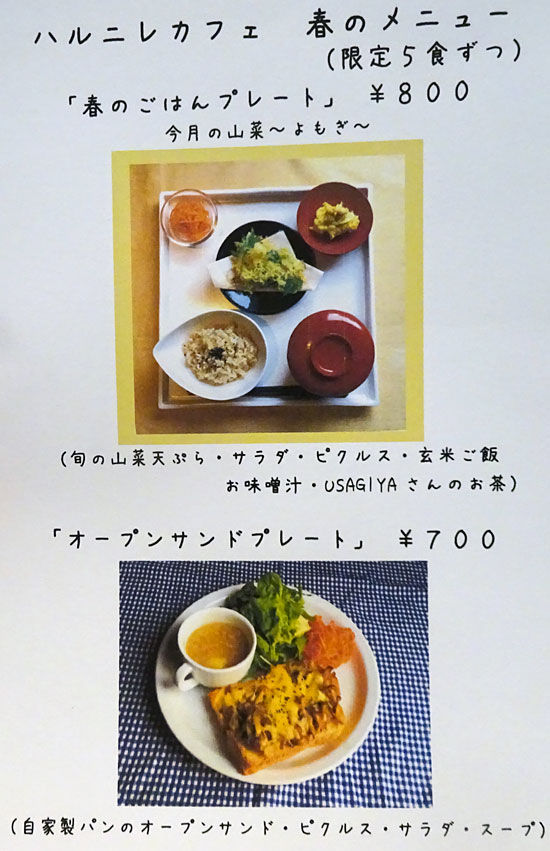 ハルニレカフェ 春のメニュー
(限定5食ずつ)
「春のごはんプレート」 ¥800
今月の山菜～よもぎ～
(旬の山菜天ぷら・サラダ・ピクルス・玄米ご飯
お味噌汁・USAGIYAさんのお茶)
「オープンサンドプレート」 ¥700
(自家製パンのオープンサンド・ピクルス・サラダ・スープ)